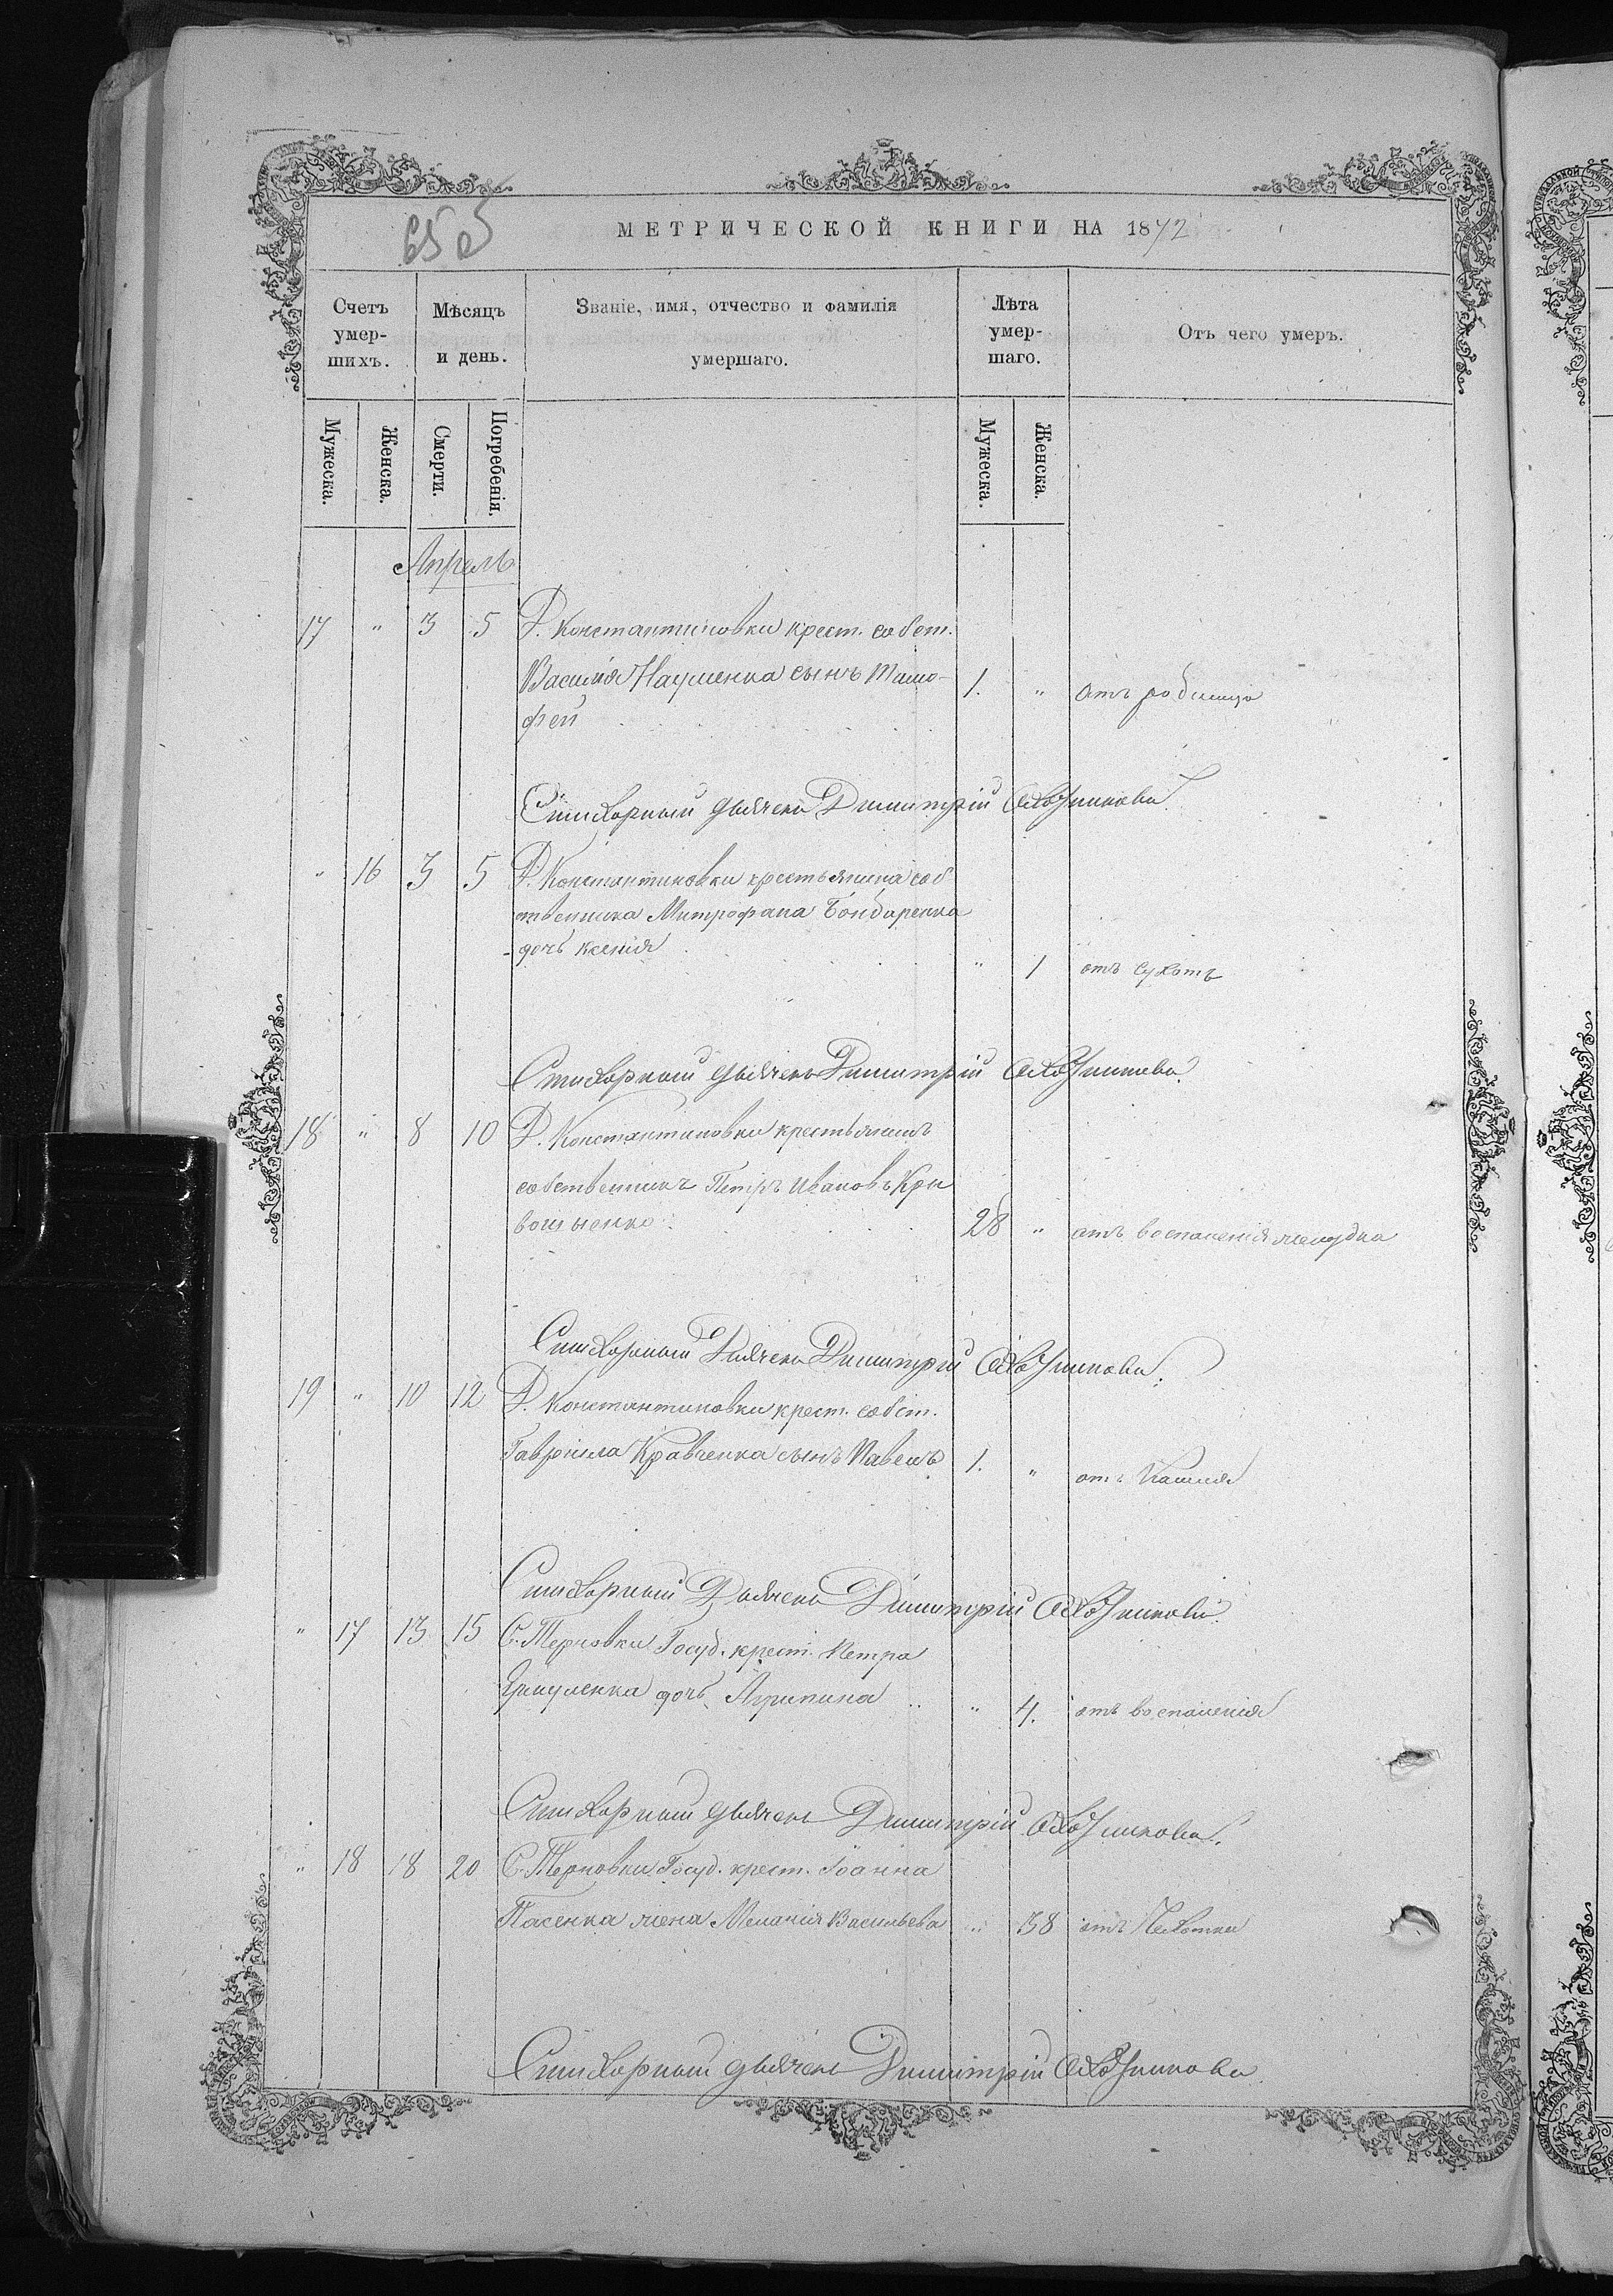 655
МЕТРИЧЕСКОЙ КНИГИ НА 1872
Счетъ умер- шихъ.
Мѣсяцъ и день.
Званіе, имя, отчество и фамилія умершаго.
Лѣта умер- шаго.
Отъ чего умеръ.
Мужеска. Женска. Смерти. Погребенія. Мужеска. Женска.
Апрель
17 " 3 5 Д. Константиновки крест. собст.
Василія Науменка сынъ Тимо- 1. " отъ родимца
фей
Стихарный дьячекъ Димитрій
" 16 3 5 Д. Константиновки крестьянина соб
ственника Митрофана Бондаренка
дочь Ксенія " 1 отъ сухотъ
Стихарный дьячекъ Димитрій
18 " 8 10 Д. Константиновки крестьянинъ
собственникъ Петръ Ивановъ Кри
28 " отъ воспаленія желудка
Стихарный Дьячекъ Димитрій
19 " 10 12 Д. Константиновки крест. собст.
Гавріила Кравченка сынъ Павелъ 1. " отъ Кашля
Стихарный Дьячекъ Димитрій
" 17 13 15 С. Терновки Госуд. крест. Петра
дочь Агрипина " 4. отъ воспаленія
Стихарный дьячекъ Димитрій
" 18 18 20 С. Терновки Госуд. крест. Іоанна
Пасенка жена Меланія Васильева " 38 отъ Чахотки
Стихарный дьячекъ Димитрій